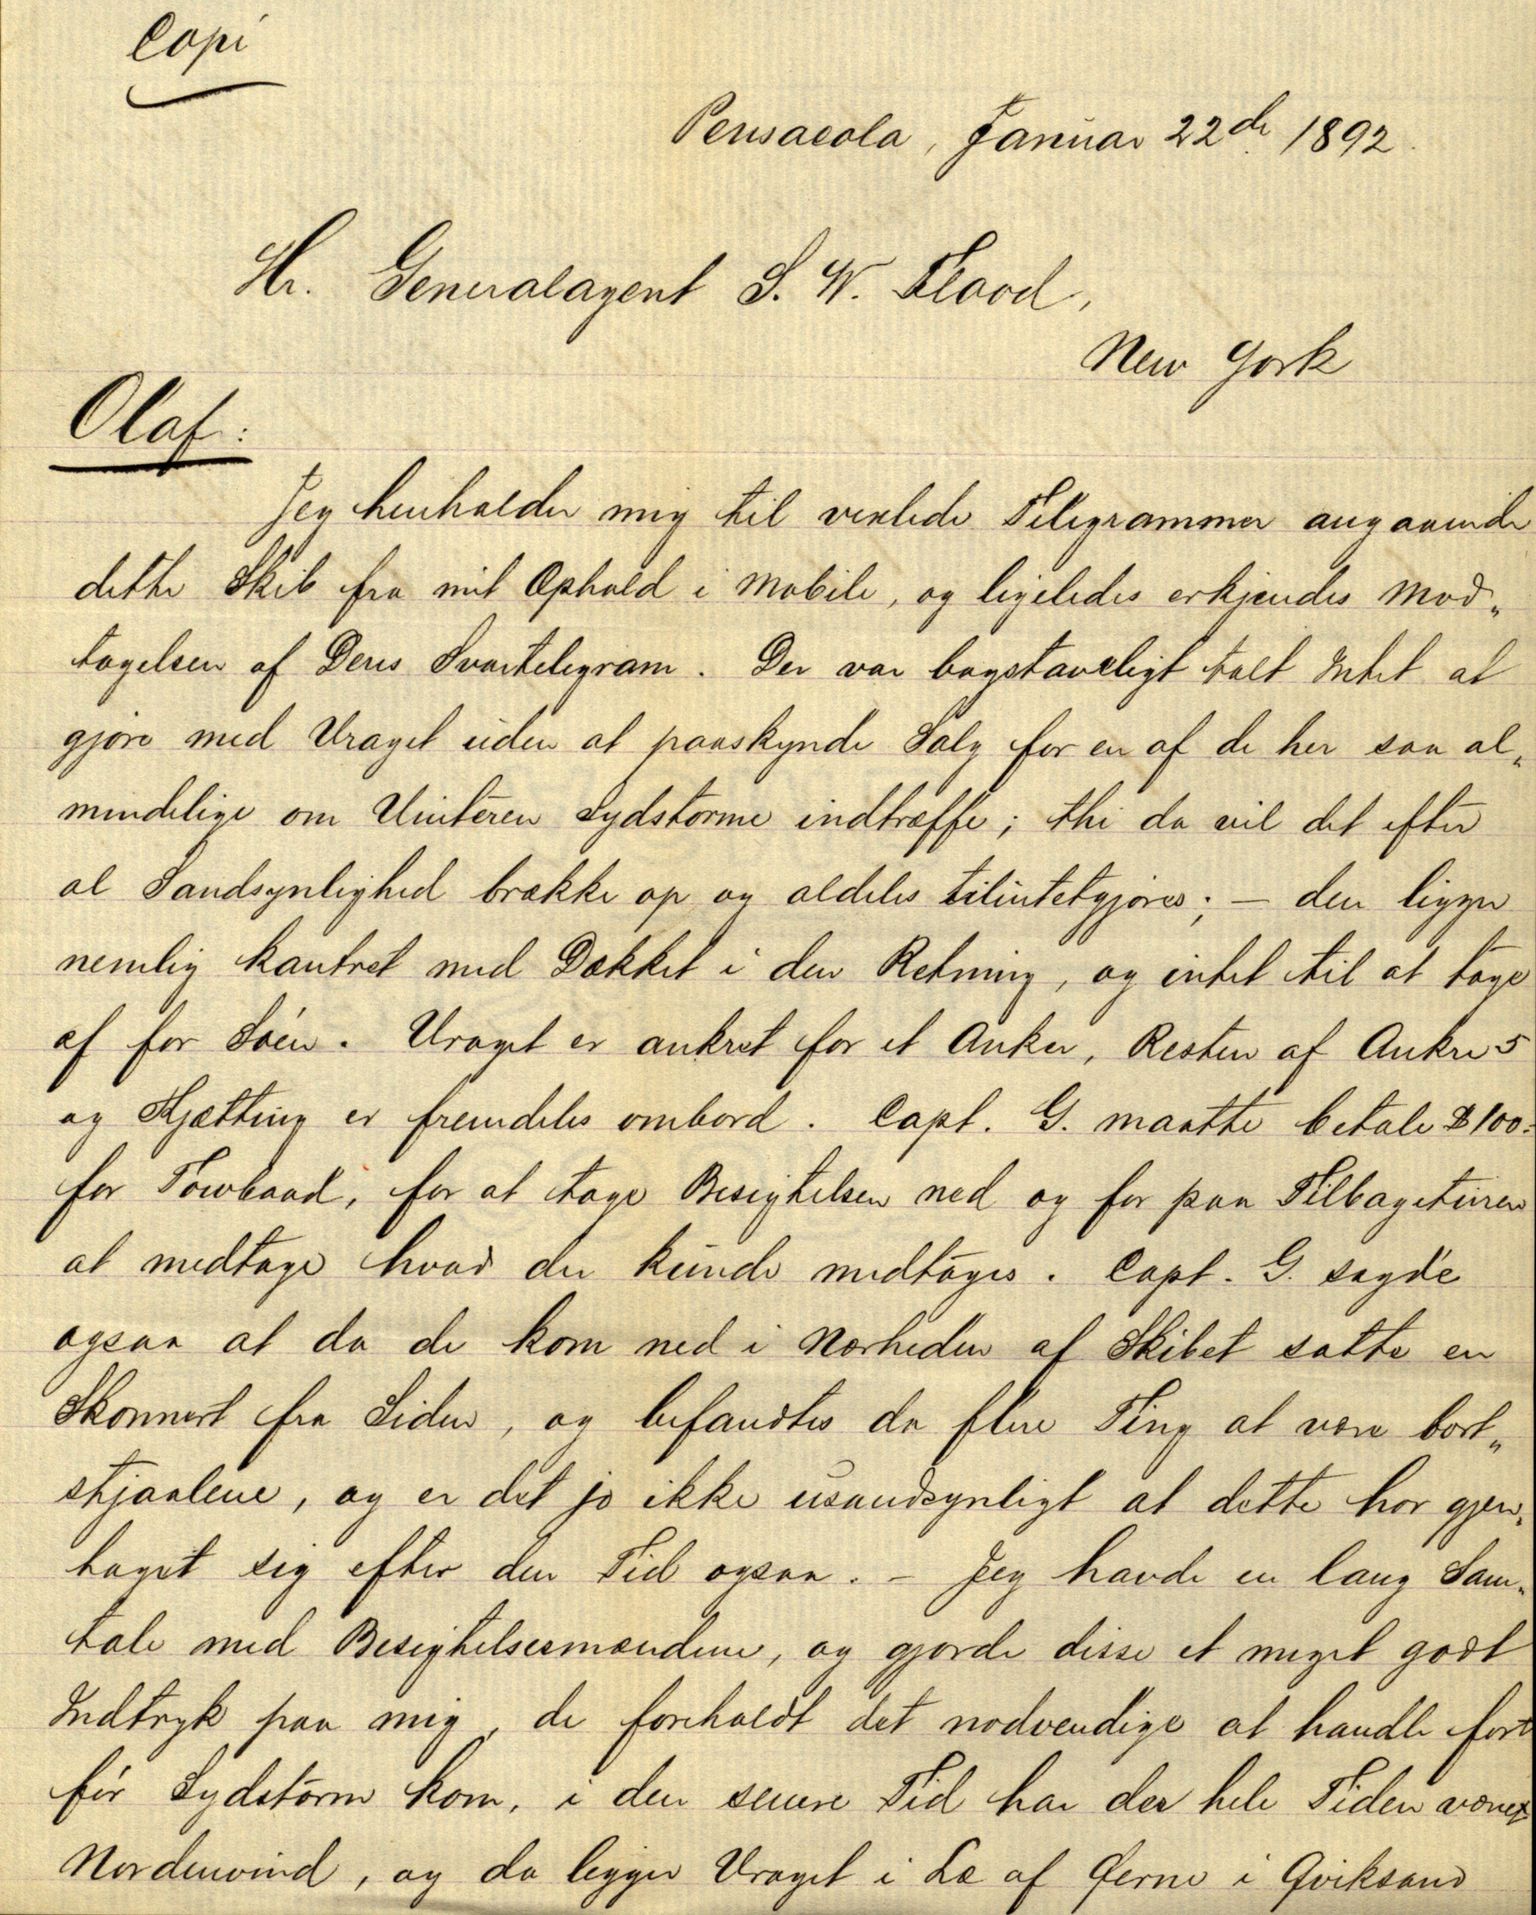 Copi
Pensacola, Januar 22de 1892.
Hr. Generalagent S. W. Flood,
New York
Olaf:
Jeg henholder mig til vexlede Telegrammer angaaende
dette Skib fra mit Ophold i Mobile, og ligeledes erkjendes Mod„
tagelsen af Deres Svartelegram. Der var bogstaveligt talt Intet at
gjøre med Vraget uden at paaskynde Salg før en af de her saa al„
mindelige om Vinteren Sydstorme indtræffe; thi da vil det efter
al Sandsynlighed brække op og aldeles tilintetgjøres; — den ligger
nemlig kantret med Dækket i den Retning, og intet til at tage
af for Søen. Vraget er ankret for et Anker, Resten af Ankre 5
og Kjætting er fremdeles ombord. Capt. G. maatte betale $100=
for Towbaad, for at tage Besigtelsen ned og for paa Tilbageturen
at medtage hvad der kunde medtages. Capt. G. sagde
ogsaa at da de kom ned i Nærheden af Skibet satte en
Skonnert fra Siden, og befandtes da flere Ting at være bort„
stjaalene, og er det jo ikke usandsynligt at dette har gjen„
taget sig efter den Tid ogsaa. — Jeg havde en lang Sam„
tale med Besigtelsesmændene, og gjorde disse et meget godt
Indtryk paa mig, de foreholdt det nødvendige at handle fort
før Sydstorm kom, i den senere Tid har der hele Tiden været
Nordenvind, og da ligger Vraget i Læ af Øerne i Qviksand